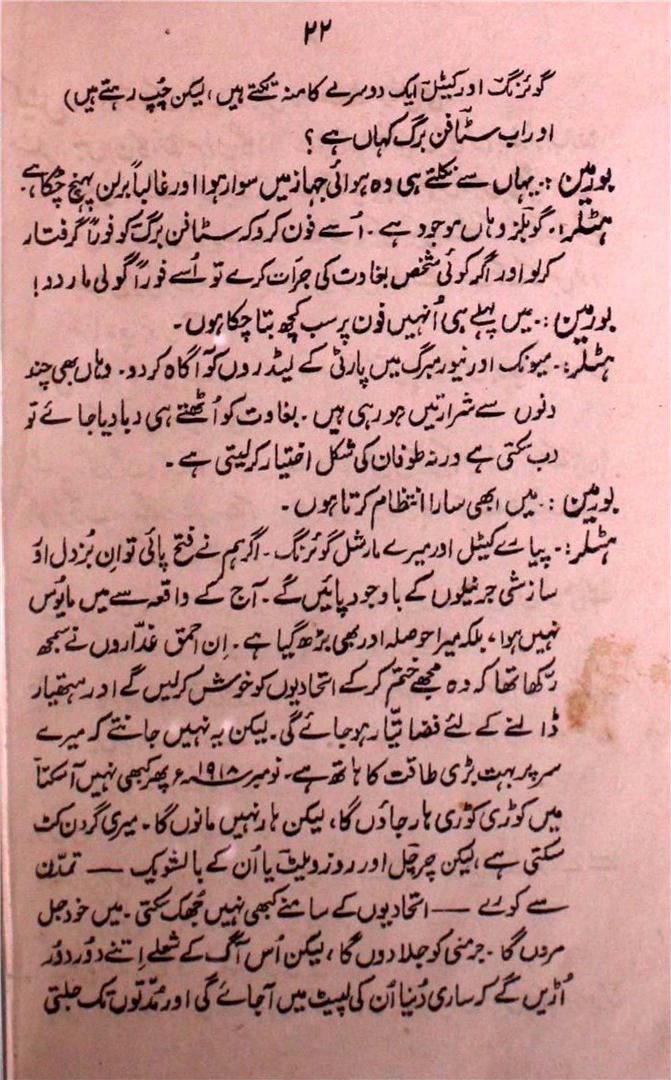 ۲۲
گوئرنگ اور کیٹل ایک دوسرے کا منہ تکتے ہیں، لیکن چُپ رہتے ہیں)
اور اب سٹافن برگ کہاں ہے؟
بورمین :۔ یہاں سے نکلتے ہی وہ ہوائی جہاز میں سوار ہوا اور غالباً برلن پہنچ چکا ہے۔
ہٹلر:۔ گوبلز وہاں موجود ہے۔ اُسے فون کر دو کہ سٹافن برگ کو فوراً گرفتار
کر لو اور اگر کوئی شخص بغاوت کی جرأت کرے تو اُسے فوراً گولی مار دو!
بورمین :۔ میں پہلے ہی اُنہیں فون پر سب کچھ بتا چکا ہوں۔
ہٹلر:۔ میونک اور نیورمبرگ میں پارٹی کے لیڈروں کو آگاہ کر دو۔ وہاں بھی چند
دنوں سے شرارتیں ہو رہی ہیں۔ بغاوت کو اُٹھتے ہی دبا دیا جائے تو
دب سکتی ہے ورنہ طوفان کی شکل اختیار کر لیتی ہے۔
بورمین :۔ میں ابھی سارا انتظام کرتا ہوں۔
ہٹلر:۔ پیارے کیٹل اور میرے مارشل گوئرنگ۔ اگر ہم نے فتح پائی تو اِن بُزدل اور
سازشی جرنیلوں کے باوجود پائیں گے۔ آج کے واقعہ سے میں مایوس
نہیں ہوا، بلکہ میرا حوصلہ اور بھی بڑھ گیا ہے۔ اِن احمق غدّاروں نے سمجھ
رکھا تھا کہ وہ مجھے ختم کر کے اتحادیوں کو خوش کر لیں گے اور ہتھیار
ڈالنے کے لئے فضا تیّار ہو جائے گی۔ لیکن یہ نہیں جانتے کہ میرے
سر پر بہت بڑی طاقت کا ہاتھ ہے۔ نومبر ۱۹۱۸ء پھر کبھی نہیں آ سکتا
میں کوڑی کوڑی ہار جاؤں گا، لیکن ہار نہیں مانوں گا۔ میری گردن کٹ
سکتی ہے، لیکن چرچل اور روزویلٹ یا اُن کے بالشویک — تمدّن
سے کورے — اتحادیوں کے سامنے کبھی نہیں جُھک سکتی۔ میں خود جل
مروں گا۔ جرمنی کو جلا دوں گا، لیکن اُس آگ کے شعلے اِتنے دُور دُور
اُڑیں گے کہ ساری دُنیا اُن کی لپیٹ میں آ جائے گی اور مُدّتوں تک جلتی